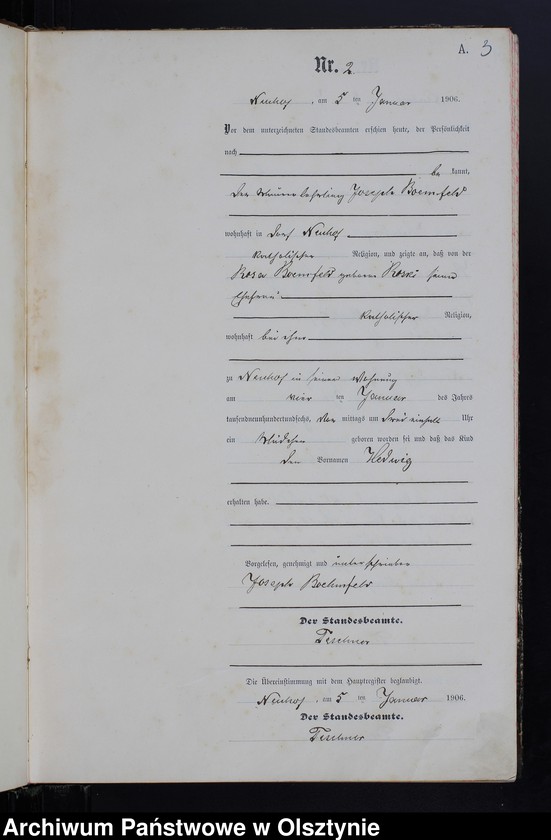 A. 3
Nr. 2
Neuhof, am 5 ten Januar 1906.
Vor dem unterzeichneten Standesbeamten erschien heute, der Persönlichkeit
nach
be kannt,
der Joseph Boehmfeld
wohnhaft in Dorf Neuhof
katholischer Religion, und zeigte an, daß von der
Rosa Boehmfeld geborene Koski seine
Ehefrau
katholischer Religion,
wohnhaft bei ihm
zu Neuhof in seiner Wohnung
am vier ten Januar des Jahrs
tausendneunhundertundsechs, Vor mittags um drei einhalb Uhr
ein Mädchen geboren worden sei und daß das Kind
den Vornamen Hedwig
erhalten habe.
Vorgelesen, genehmigt und unterschrieben
Joseph Boehmfeld
Der Standesbeamte.
Teschner
Die Übereinstimmung mit dem Hauptregister beglaubigt.
Neuhof, am 5 ten Januar 1906.
Der Standesbeamte.
Teschner
Archiwum Państwowe w Olsztynie